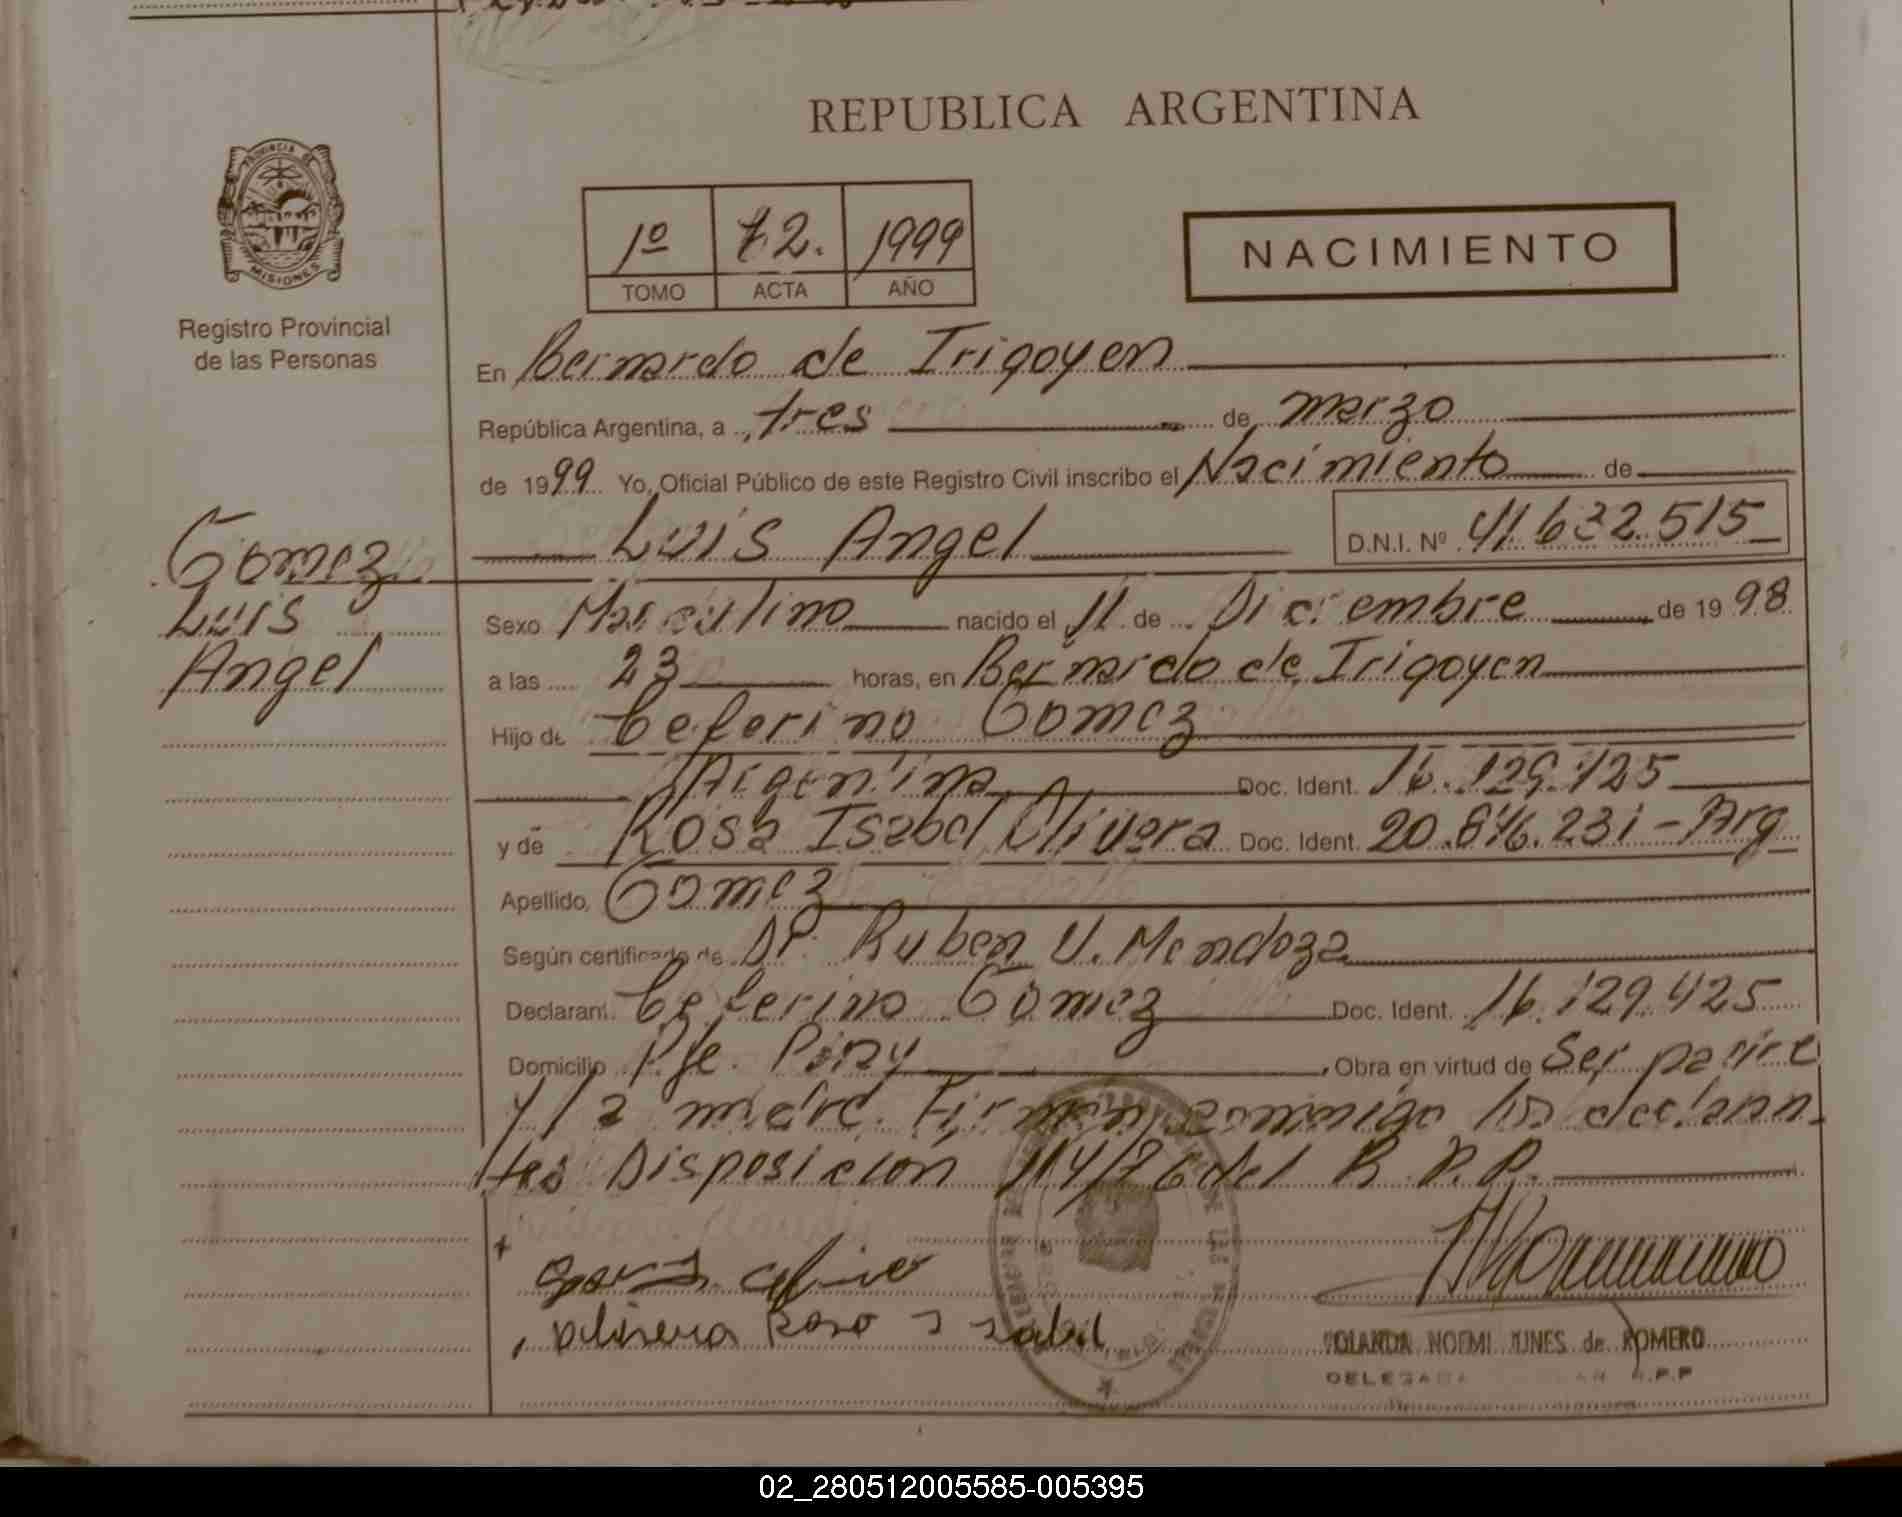 REPUBLICA ARGENTINA
PROVINCIA DE
MISIONES
Registro Provincial
de las Personas
1º 72. 1999
TOMO ACTA AÑO
NACIMIENTO
En Bernardo de Irigoyen
República Argentina, a tres de marzo
de 1999 Yo, Oficial Público de este Registro Civil inscribo el Nacimiento de
Luis Angel D.N.I. Nº 41.632.515
Gomez
Luis
Angel
Sexo Masculino nacido el 11 de Diciembre de 1998
a las 23 horas, en Bernardo de Irigoyen
Hijo de Ceferino Gomez
Argentina Doc. Ident. 16.129.425
y de Rosa Isabel Olivera Doc. Ident. 20.846.231-Arg
Apellido Gomez
Según certificado de Dr. Ruben V. Mendoza
Declarant. Ceferino Gomez Doc. Ident. 16.129.425
Domicilio Pje. Piray, Obra en virtud de Ser padre
y la madre. Firman conmigo los declaran-
tes Disposicion 114/76 del R.P.P.
olivera Rosa Isabel
YOLANDA NOEMI NUNES de ROMERO
DELEGADA R.P.P
02_280512005585-005395